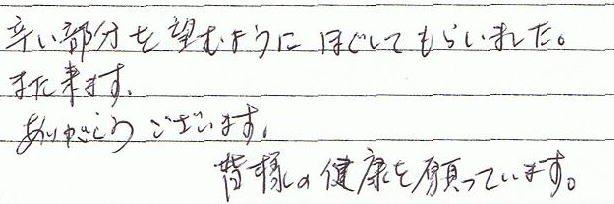 辛い部分を望むようにほぐしてもらいました。
また来ます。
ありがとうございます。
皆様の健康を願っています。